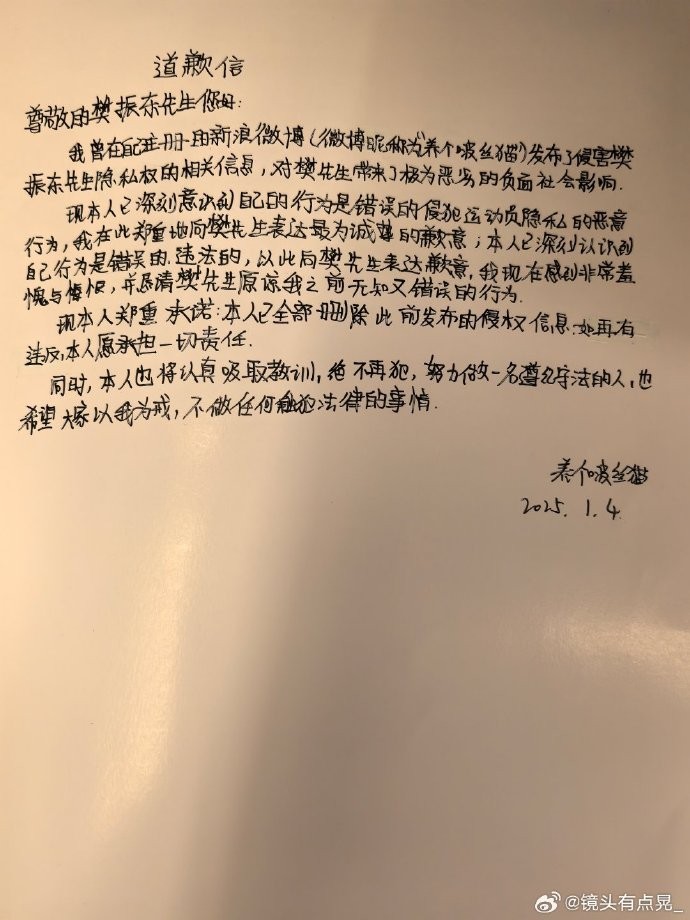 道歉信
尊敬的樊振东先生您好:
我曾在自己注册的新浪微博(微博昵称为养个啵丝猫)发布了侵害樊
振东先生隐私权的相关信息,对樊先生带来了极为恶劣的负面社会影响.
现本人已深刻意识到自己的行为是错误的侵犯运动员隐私的恶意
行为,我在此郑重地向樊先生表达最为诚挚的歉意;本人已深刻认识到
自己行为是错误的.违法的,以此向樊先生表达歉意,我现在感到非常羞
愧与懊悔,并恳请樊先生原谅我之前无知又错误的行为.
现本人郑重承诺:本人已全部删除此前发布的侵权信息.如再有
违反,本人愿承担一切责任.
同时,本人也将认真吸取教训,绝不再犯,努力做一名遵纪守法的人,也
希望大家以我为戒,不做任何触犯法律的事情.
养个啵丝猫
2025.1.4
@镜头有点晃_